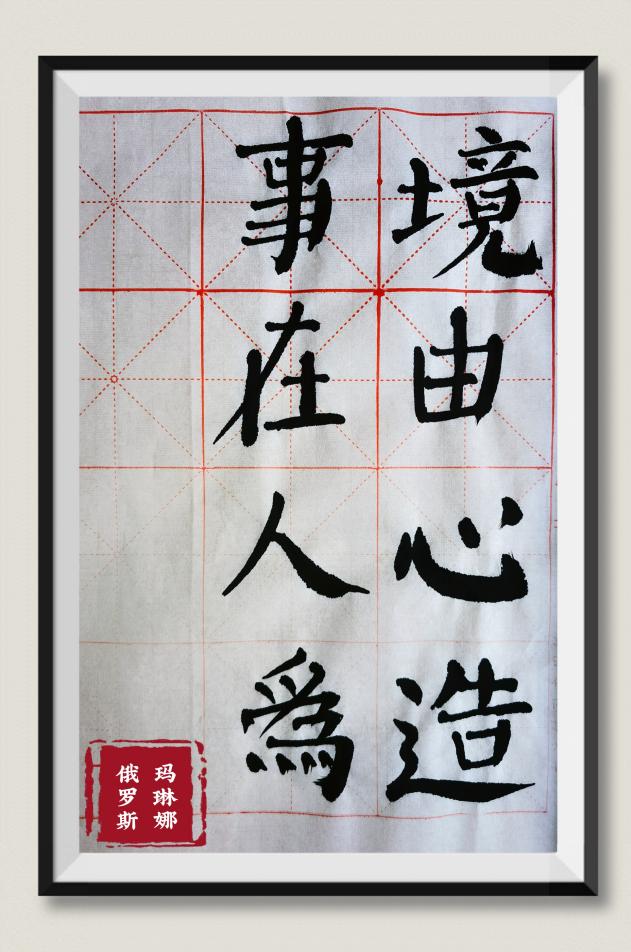 境由心造
事在人為
玛琳娜
俄罗斯